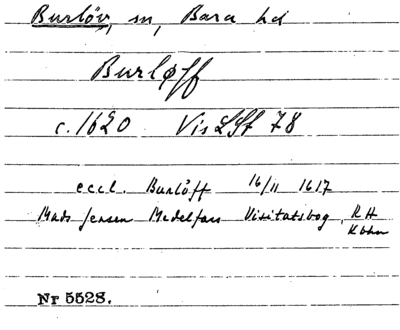 Burlöv, sn, Bara hd
Burløff
c. 1620 Vis LSt 78
eccl. Burlöff 16/11 1617
Mads Jensen Medelfars Visitatsbog, RH
Kbhn
Nr 5528.